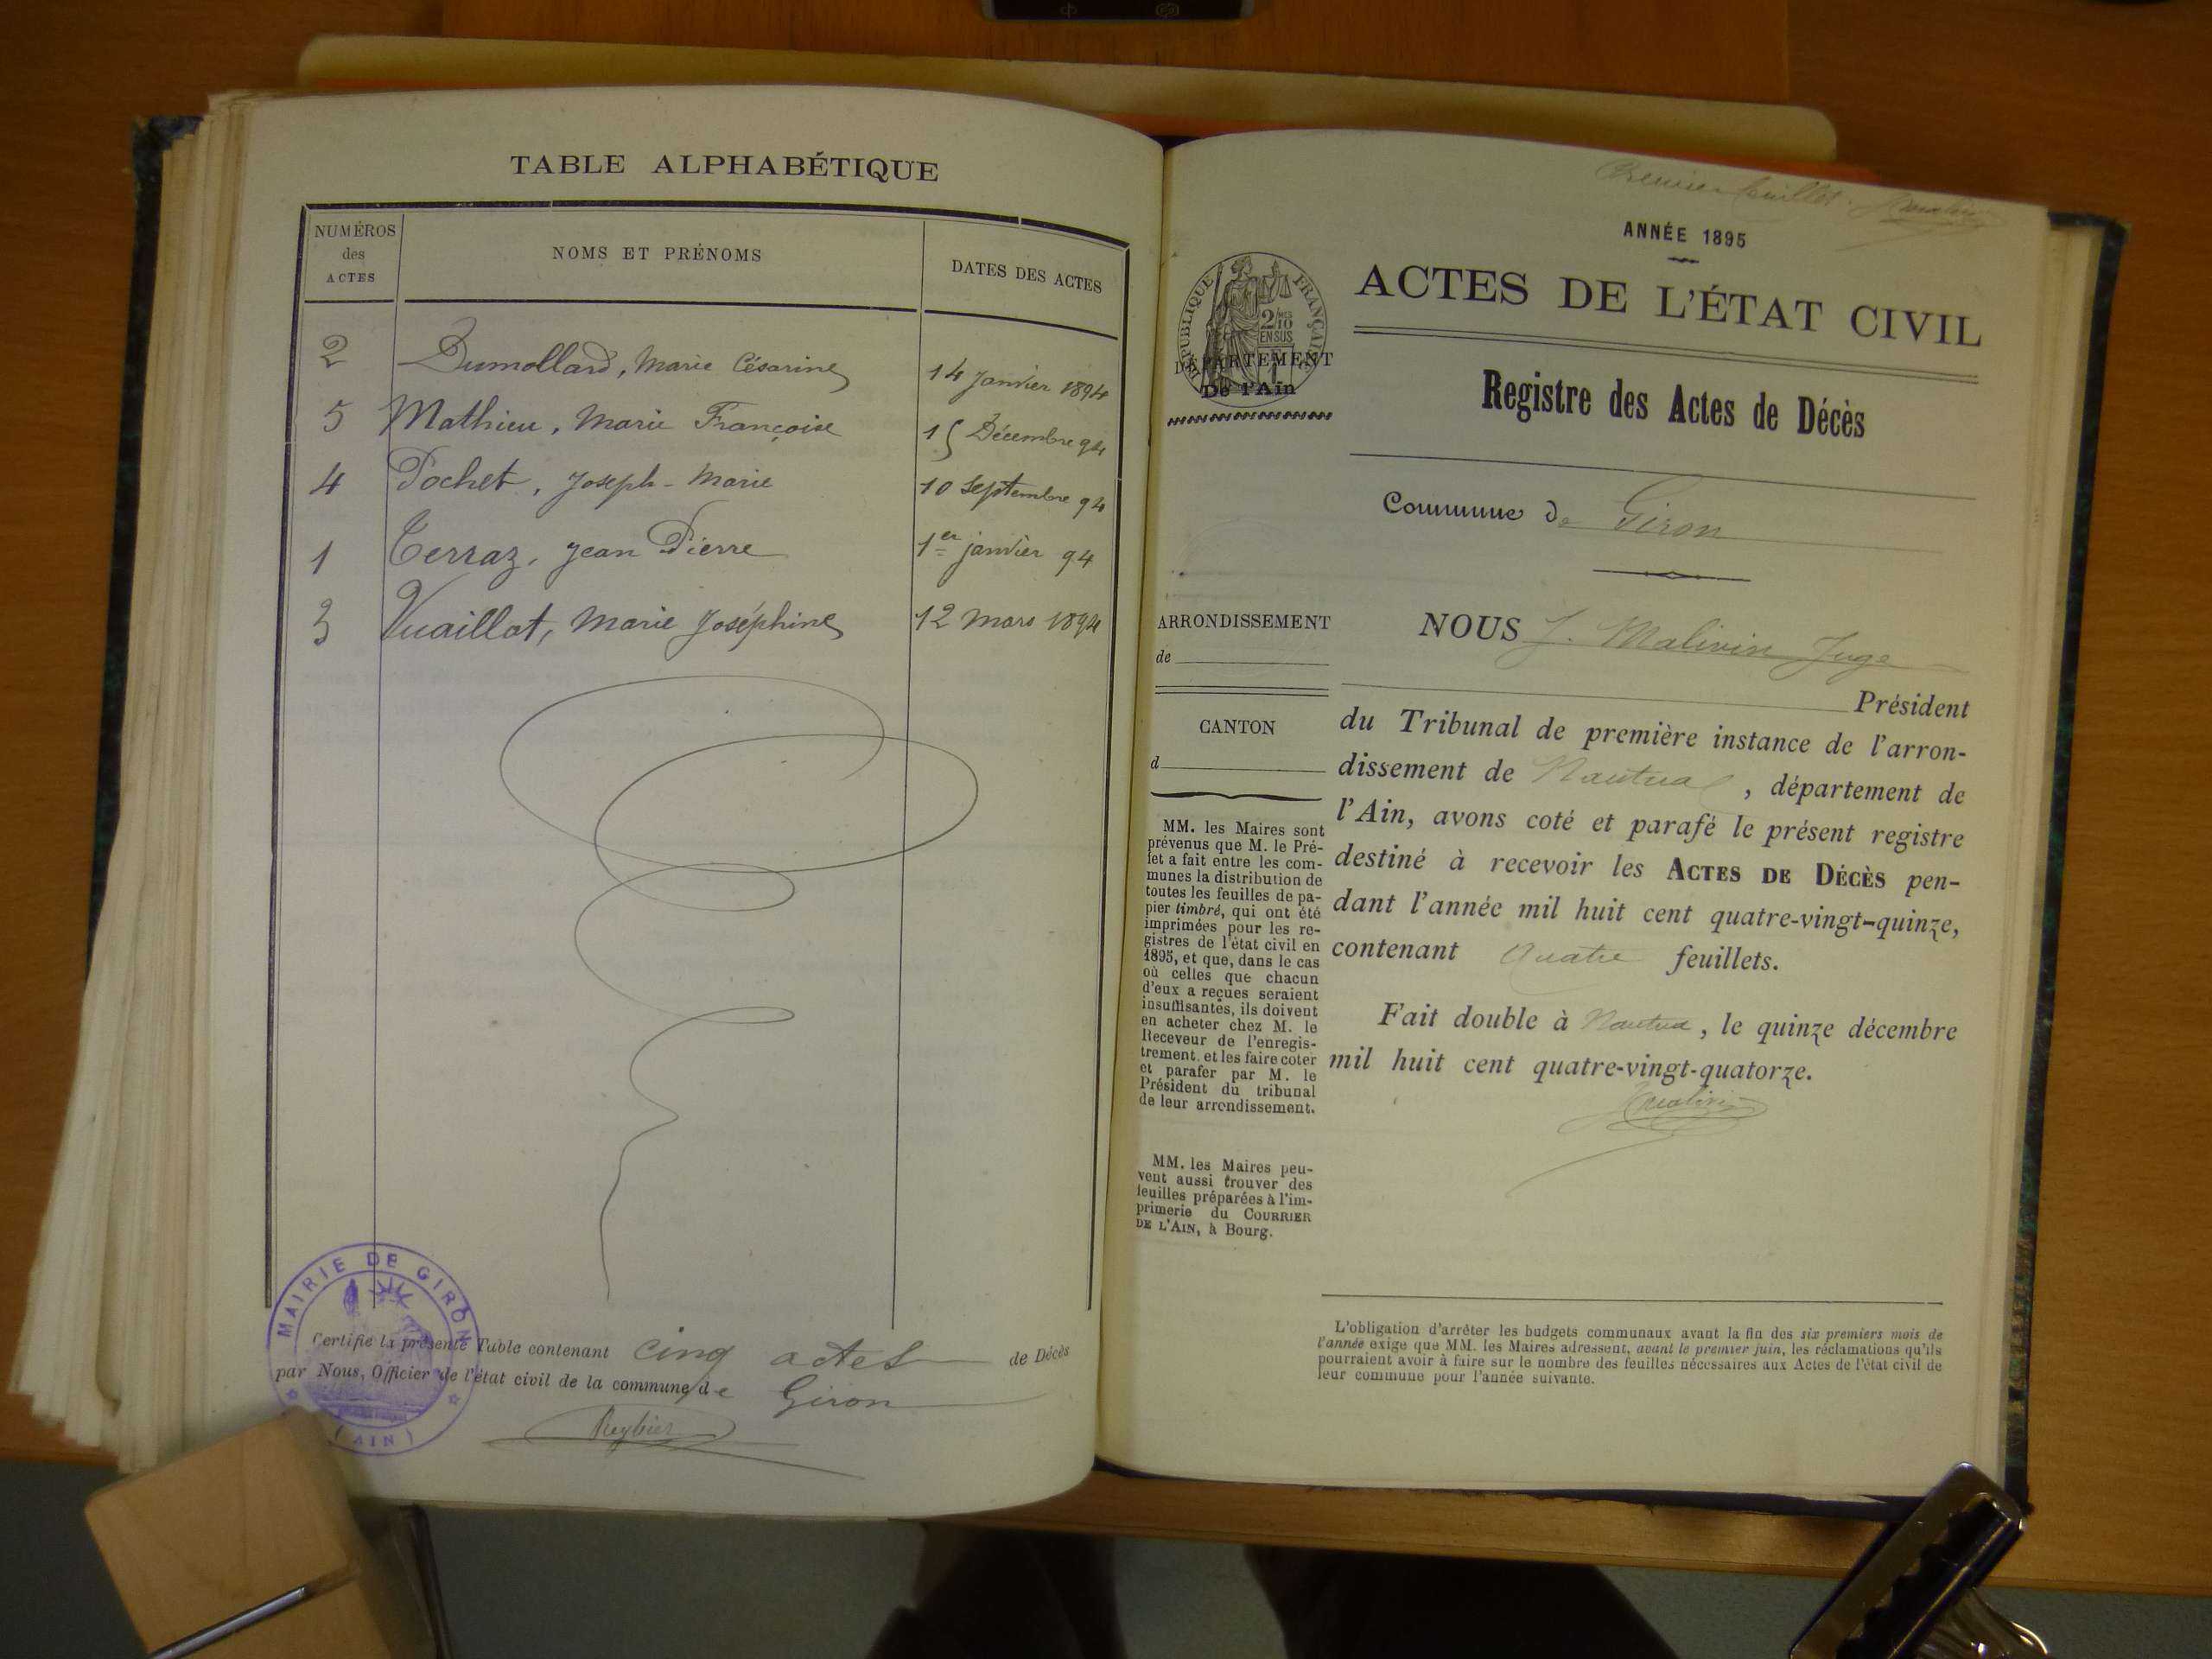 TABLE ALPHABÉTIQUE
NUMÉROS des ACTES
NOMS ET PRÉNOMS
DATES DES ACTES
2 Dumollard, Marie Césarine 14 Janvier 1894
5 Mathieu, Marie Françoise 15 Décembre 94
4 Pochet, Joseph-Marie 10 Septembre 94
1 Terraz, Jean Pierre 1er janvier 94
3 Vuaillat, Marie Joséphine 12 Mars 1894
MAIRIE DE GIRON
(AIN)
Certifié la présente Table contenant cinq actes de Décès
par Nous, Officier de l'état civil de la commune de Giron
Reybier
Premier feuillet. Jmalivin
ANNÉE 1895
ACTES DE L'ÉTAT CIVIL
RÉPUBLIQUE FRANÇAISE
2/10 MES
EN SUS
DÉPARTEMENT
De l'Ain
Registre des Actes de Décès
Commune de Giron
ARRONDISSEMENT
de
CANTON
d
MM. les Maires sont
prévenus que M. le Pré-
fet a fait entre les com-
munes la distribution de
toutes les feuilles de pa-
pier timbré, qui ont été
imprimées pour les re-
gistres de l'état civil en
1895, et que, dans le cas
où celles que chacun
d'eux a reçues seraient
insuffisantes, ils doivent
en acheter chez M. le
Receveur de l'enregis-
trement, et les faire coter
et parafer par M. le
Président du tribunal
de leur arrondissement.
MM. les Maires peu-
vent aussi trouver des
feuilles préparées à l'im-
primerie du COURRIER
DE L'AIN, à Bourg.
NOUS J. Malivin Juge
Président
du Tribunal de première instance de l'arron-
dissement de Nantua, département de
l'Ain, avons coté et parafé le présent registre
destiné à recevoir les ACTES DE DÉCÈS pen-
dant l'année mil huit cent quatre-vingt-quinze,
contenant Quatre feuillets.
Fait double à Nantua, le quinze décembre
mil huit cent quatre-vingt-quatorze.
Jmalivin
L'obligation d'arrêter les budgets communaux avant la fin des six premiers mois de
l'année exige que MM. les Maires adressent, avant le premier juin, les réclamations qu'ils
pourraient avoir à faire sur le nombre des feuilles nécessaires aux Actes de l'état civil de
leur commune pour l'année suivante.